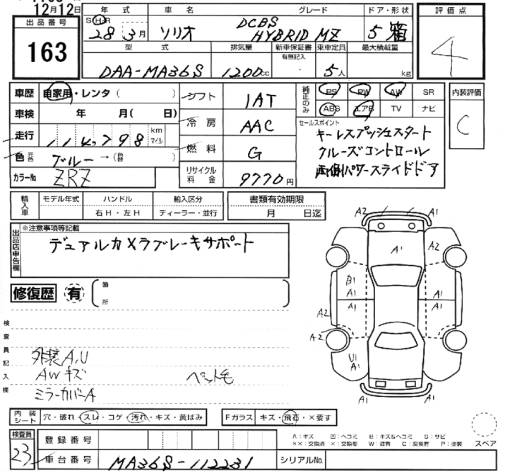 12月12日
出品番号
163
年式 車名 グレード ドア・形状
28年3月 ソリオ DCBS HYBRID MZ 5 箱
型式 排気量 新車保証書 乗車定員 最大積載量
有無記入
DAA-MA36S 1200cc 5人 kg
評価点
4
車歴 自家用・レンタ( )
車検 年 月( 日)
走行 km マイル
色 ブルー→
カラーNo ZRZ
シフト 1AT
冷房 AAC
燃料 G
リサイクル料金 9770円
純正のみ PS PW AW SR
ABS エアB TV ナビ
セールスポイント
キーレスプッシュスタート
クルーズコントロール
両側パワースライドドア
内装評価
C
輸入車 モデル年式 ハンドル 輸入区分 書類有効期限
年 右H・左H ディーラー・並行 月 日迄
出品店申告欄
※注意事項等記載
デュアルカメラブレーキサポート
修復歴 有 箇所
検査員記入欄
外装A,U
AWキズ ペット毛
ミラーカバーA
A2 A1 A2
A1
B1 A1
A1 A1
A2
U1 A1
A1
内装シート 穴・破れ・スレ・コゲ・汚れ・キズ・黄ばみ
Fガラス キズ・飛石・×要す
スペア
検査員 23
登録番号
車台番号 MA36S-112231
シリアルNo.